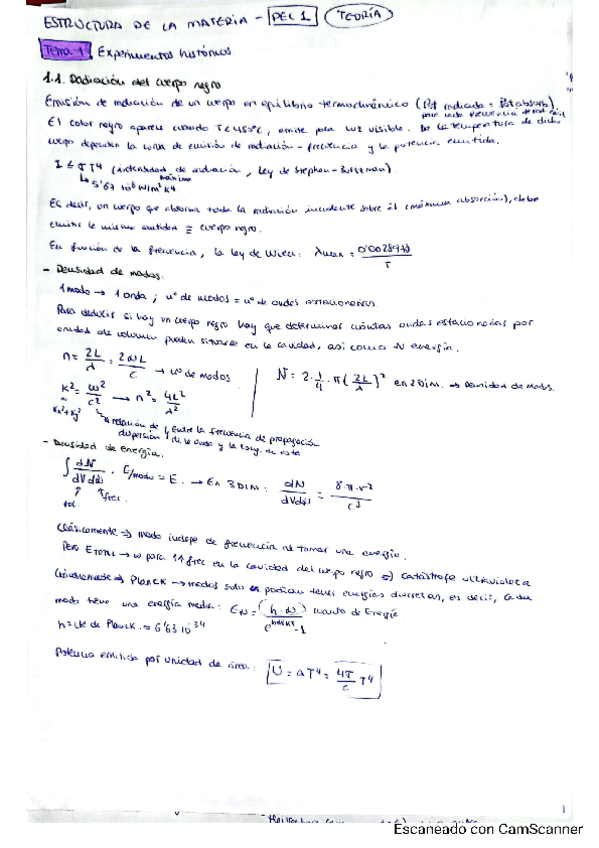 ESTRUCTURA DE LA MATERIA - PEC 1 (TEORÍA)
Tema 1. Experimentos históricos
1.1. Radiación del cuerpo negro
Emisión de radiación de un cuerpo en equilibrio termodinámico (Pot radiada = Pot absorb)
para cada frecuencia
El color negro aparece cuando emite poca luz visible. De la temperatura de dicho
cuerpo dependen la curva de emisión de radiación - frecuencia y la potencia emitida.
I ≤ σT⁴ (intensidad de radiación, Ley de Stephan-Boltzman)
máxima
↳ 5'67 10⁻⁸ W/m² K⁴
Es decir, un cuerpo que absorba toda la radiación incidente sobre él (máxima absorción), debe
emitir la misma cantidad ≡ cuerpo negro.
En función de la frecuencia, la ley de Wien: λmax = 0'0028978 / T
- Densidad de modos.
1 modo → 1 onda ; nº de modos = nº de ondas estacionarias
Para deducir si hay un cuerpo negro hay que determinar cuántas ondas estacionarias por
unidad de volumen pueden situarse en la cavidad, así como su energía.
n = 2L/λ = 2νL/c → nº de modos
N = 2 · 1/4 · π (2L/λ)² en 2 Dim. → Densidad de modos.
k² = ω²/c² → n² = 4L²/λ²
kx² + ky²
↳ relación de dispersión
Entre la frecuencia de propagación
de la onda y la long. de onda
- Densidad de energía.
∫ dN/dVdν · E/modo = E. → En 3 DIM: dN/dVdν = 8·π·ν²/c³
↑ vol. ↑ frec.
Clásicamente ⇒ modo indepe de frecuencia al tomar una energía.
Pero ETOTAL → ∞ para ↑↑ frec en la cavidad del cuerpo negro ⇒ catástrofe ultravioleta
Planck → modos solo podían tener energías discretas, es decir, cada
modo tiene una energía media: EN = (h·ν) / e^(hν/kT) - 1 cuanto de Energía
h = cte de Planck = 6'63 10⁻³⁴
Potencia emitida por unidad de área: U = aT⁴ = 4σ/c T⁴
1
Escaneado con CamScanner